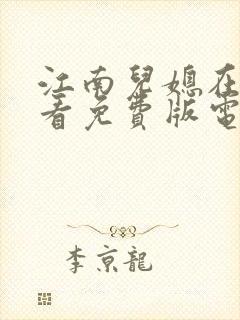 江南兒媳在
看免費版電
李京龍